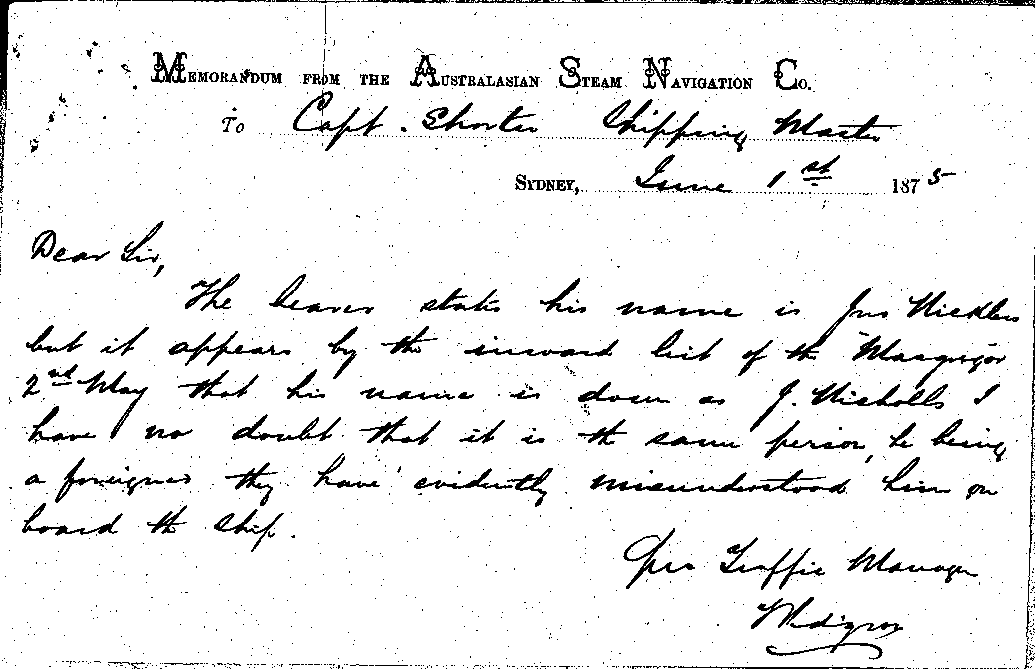 MEMORANDUM FROM THE AUSTRALASIAN STEAM NAVIGATION CO.
To Capt. Shorter Shipping Master
SYDNEY, June 1st 1875
Dear Sir,
The bearer states his name is Jno Nicklas
but it appears by the inward list of the Macgregor
2nd May that his name is down as J. Nicholls I
have no doubt that it is the same person, he being
a foreigner they have evidently misunderstood him on
board the ship.
pro Traffic Manager